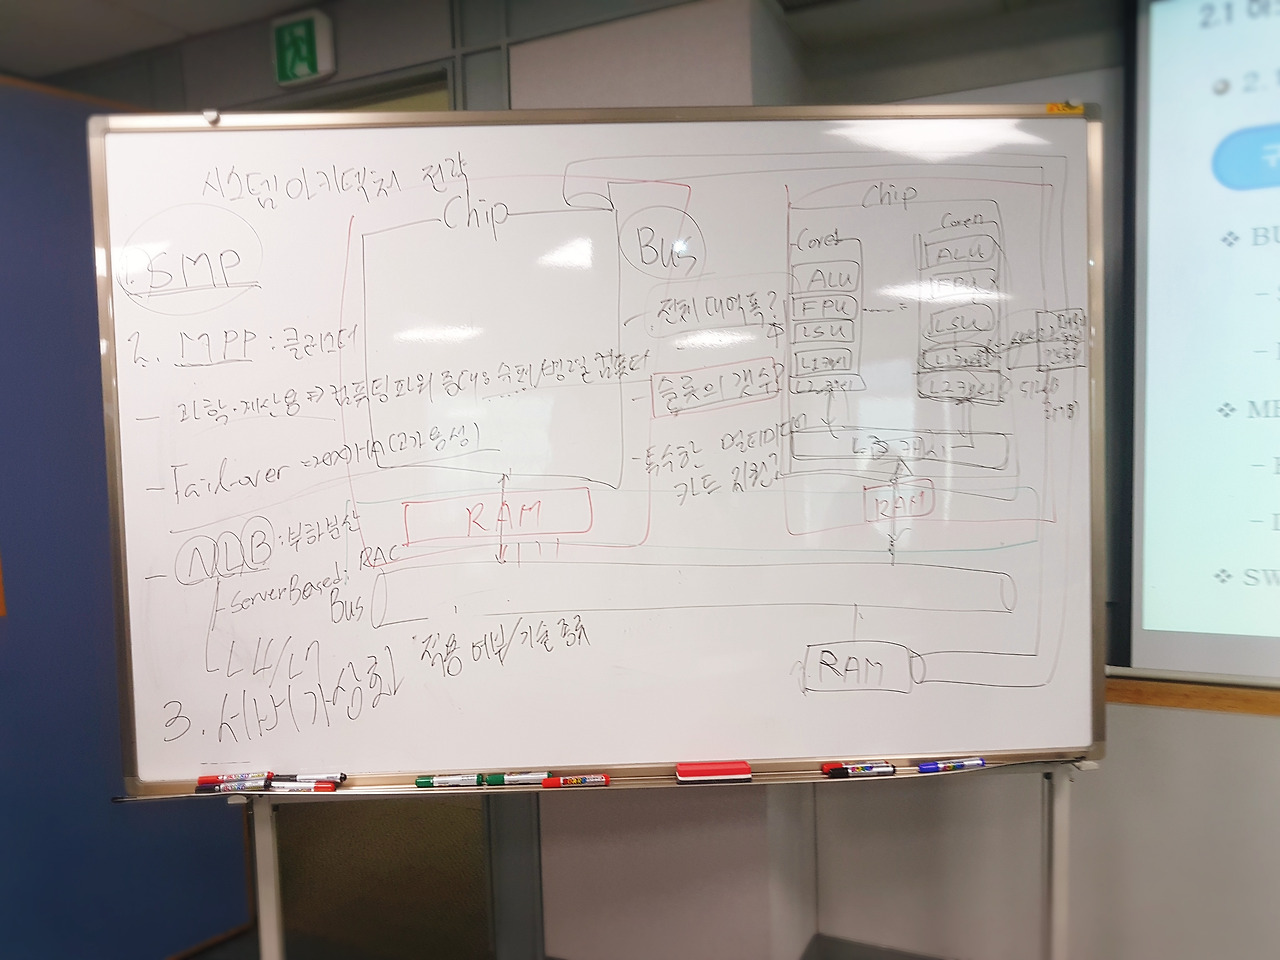 시스템아키텍처 전략
1. SMP
2. MPP : 클러스터
- 과학·계산용 ⇒ 컴퓨팅파워 증대용 슈퍼/병렬컴퓨터
- Fail-over ⇒ HA(고가용성)
- NLB : 부하분산
Server Based: RAC
L4/L7
3. 서버가상화 적용여부/기술종류
Chip
RAM
Bus
Bus
전체 대역폭?
- 슬롯의 갯수?
- 특수한 멀티미디어
카드 지원?
Chip
Core1
ALU
FPU
LSU
L1캐시
L2캐시
Core n
ALU
FPU
LSU
L1캐시
L2캐시
L3 캐시
RAM
RAM
2.1
2.
BU
SW